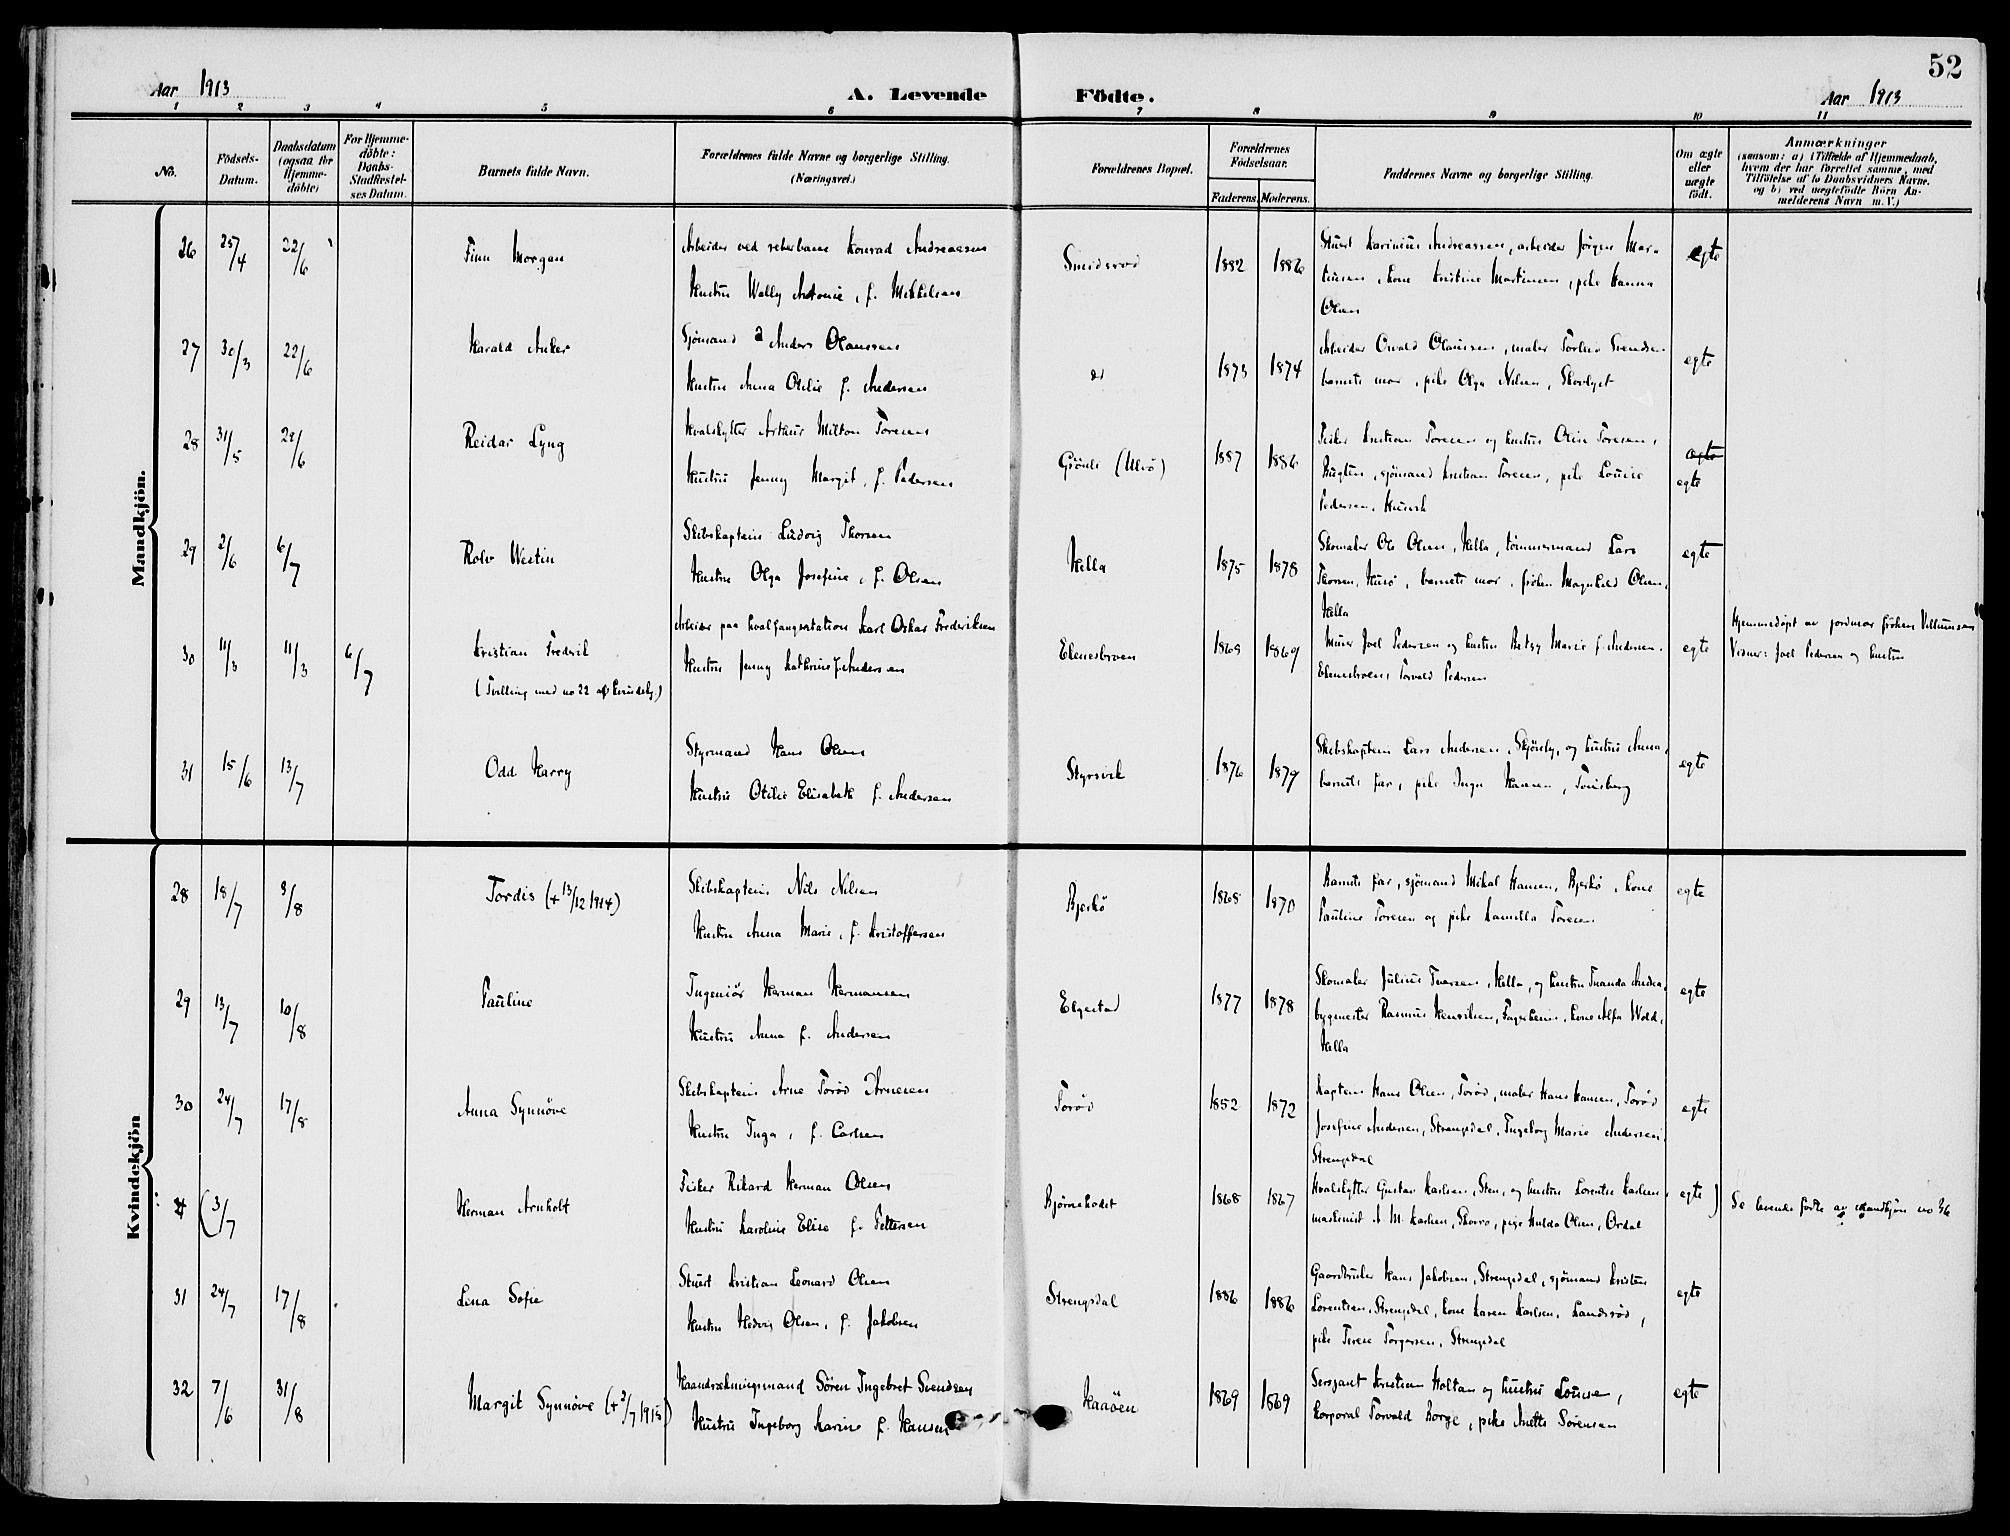 52
Aar 1913
A. Levende Födte.
Aar 1913
1 2 3 4 5 6 7 8 9 10 11
No.
Födsels-
Datum.
Daabsdatum
(ogsaa for
Hjemme-
döbte)
For Hjemme-
döbte:
Daabs-
Stadfæstel-
ses Datum.
Barnets fulde Navn.
Forældrenes fulde Navne og borgerlige Stilling.
(Næringsvei.)
Forældrenes Bopæl.
Forældrenes
Födselsaar.
Faderens. Moderens.
Faddernes Navne og borgerlige Stilling.
Om ægte
eller
uægte
födt.
Anmærkninger
(saasom: a) i Tilfælde af Hjemmedaab,
hvem der har forrettet samme, med
Tilföielse af to Daabsvidners Navne.
og b) ved uægtefödte Börn An-
melderens Navn m. V.)
Mandkjön.
26 25/4 22/6 Finn Morgan
Arbeider ved reberbane Konrad Andreassen
Hustru Wally Antonie, f. Mikkelsen
Smidsrod 1882 1886
Stuert Karinius Andreassen, arbeider Jörgen Mar-
tinsen, kone Kristine Martinsen, pike Hanna
Olsen
egte
27 30/3 22/6 Harald Anker
Sjömand Anders Olaussen
Hustru Anna Otilie f. Andersen
1873 1874
Arbeider Osvald Olaussen, maler Torleiv Svendsen
barnets mor, pike Olga Nilsen, Skovlyst
egte
28 31/5 29/6 Reidar Lyng
Hvalskytter Arthur Milton Foreens
Hustru Jenny Margit, f. Pedersen
Grönli (Hvö) 1887 1886
Fisker Kristian Toresen og hustru Oline Toresen,
Bugten, sjömand Kristian Toresen, pike Louise
Pedersen, Husvik
egte
egte
29 2/6 6/7 Rolv Westin
Skibskaptein Ludvig Thorsen
Hustru Olga Josefine, f. Olsen
Hella 1875 1878
Skomaker Ole Olsen, Hella, tömmermand Lars
Thorsen, Husö, barnets mor, fröken Magnhild Olsen,
Hella
egte
30 11/3 11/3 6/7 Kristian Frederik
(Tvilling med no 22 af kvindekj.)
Arbeider paa hvalfangerstation Karl Oskar Frederiksen
Hustru Jenny Kathrine f. Andersen
Ekenesbroen 1869 1869
Murer Joel Pedersen og hustru Betsy Marie f. Andersen.
Ekenesbroen, Torvald Pedersen
egte
Hjemmedöpt av jordmor fröken Villumsen
Vidner: Joel Pedersen og hustru
31 15/6 13/7 Odd Harry
Styrmand Hans Olsen
Hustru Otilie Elisabeth f. Andersen
Styrsvik 1876 1879
Skibskaptein Lars Andersen, Skjönly, og hustru Anna,
barnets far, pike Inga Hansen, Tönsberg
egte
Kvindekjön
28 18/7 3/8 Tordis (+ 13/12 1914)
Skibskaptein Nils Nilsen
Hustru Anna Marie, f. Kristoffersen
Bjerkö 1868 1870
Barnets far, sjömand Mikal Hansen, Bjerkö, kone
Pauline Toresen og pike Kamilla Toresen
egte
29 13/7 10/8 Pauline
Ingeniör Herman Hermansen
Hustru Anna f. Andersen
Elgestad 1877 1878
Skomaker Julius Iversen, Hella, og hustru Tranda Andrea,
bygmester Rasmus Henriksen, Fagerheim, kone Alfa Wold,
Hella
egte
30 24/7 17/8 Anna Synnöve
Skibskaptein Arne Toröd Arnesen
Hustru Inga, f. Carlsen
Toröd 1852 1872
Kaptein Hans Olsen, Toröd, maler Hans Hansen, Toröd
Josefine Andersen, Strengsdal, Ingeborg Marie Andersen,
Strengsdal
egte
(3/7 Herman Arnholt
Fisker Rikard Herman Olsen
Hustru Karoline Elise f. Pettersen
Björnehodet 1868 1867
Hvalskytter Gustav Karlsen, Sten, og hustru Lorentse Karlsen,
maskinist A. M. Karlsen, Skovro, pige Hulda Olsen, Ordal
egte )
Se levende födte av mandkjön no 36
31 24/7 17/8 Lina Sofie
Stuert Kristian Leonard Olsen
Hustru Hedvig Olsen, f. Jakobsen
Strengsdal 1886 1886
Gaardbruker Hans Jakobsen, Strengsdal, sjömand Kristian
Lorentsen, Strengsdal, kone Karen Karlsen, Landsröd,
pike Terese Torgersen, Strengsdal
egte
32 7/6 31/8 Margit Synnöve (+ 2/7 1915)
Haandrækningsmand Sören Ingebret Svendsen
Hustru Ingeborg Karine f. Hansen
Kaaöen 1869 1869
Sersjant Kristian Holtan og hustru Louise,
Korporal Torvald Borge, pike Anette Sörensen
egte